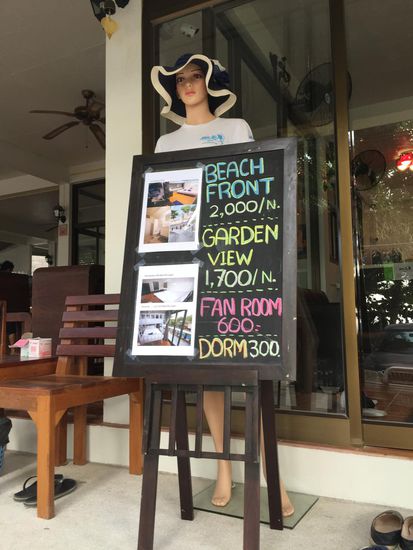 BEACH
FRONT
2,000/N.
GARDEN
VIEW
1,700/N.
FAN ROOM
600.-
DORM 300.